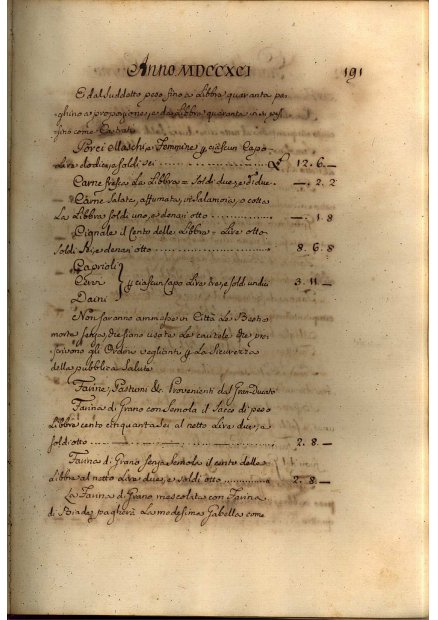 Anno MDCCXCI 191
E dal suddetto peso fino a Libbre quaranta pa-
ghino a proporzione, e da Libbre quaranta in su pas-
sino come Castrati
Porci Maschi, e Femmine p ciascun Capo
Lire dodici, e soldi sei ........ £ 12. 6. —
Carne fresca La Libbra = Soldi due, e di due — . 2. 2
Carne Salata, affumata, in Salamoia, o cotta
La Libbra soldi uno, e denari otto ........ — . 1 8
Cignale il Cento delle Libbre = Lire otto
Soldi Sei, e denari otto ........ 8. 6. 8
Caprioli
Cervi
Daini
p ciascun Capo Lire tre, e soldi undici 3. 11. —
Non saranno ammesse in Città Le Bestie
morte senza, che siano usate Le cautele che pre-
scrivono gli Ordini veglianti p La Sicurezza
della pubblica Salute
Farine, Pastumi &c. Provenienti dal Gran-Ducato
Farina di Grano con Semola il Sacco di peso
Libbre cento cinquanta sei al netto Lire due, e
soldi otto ........ 2. 8. —
Farina di Grano senza Semola il cento delle
Libbre al netto Lire due, e soldi otto ........ 2. 8. —
La Farina di Grano mescolata con Farina
di Biade pagherà La medesima Gabella come